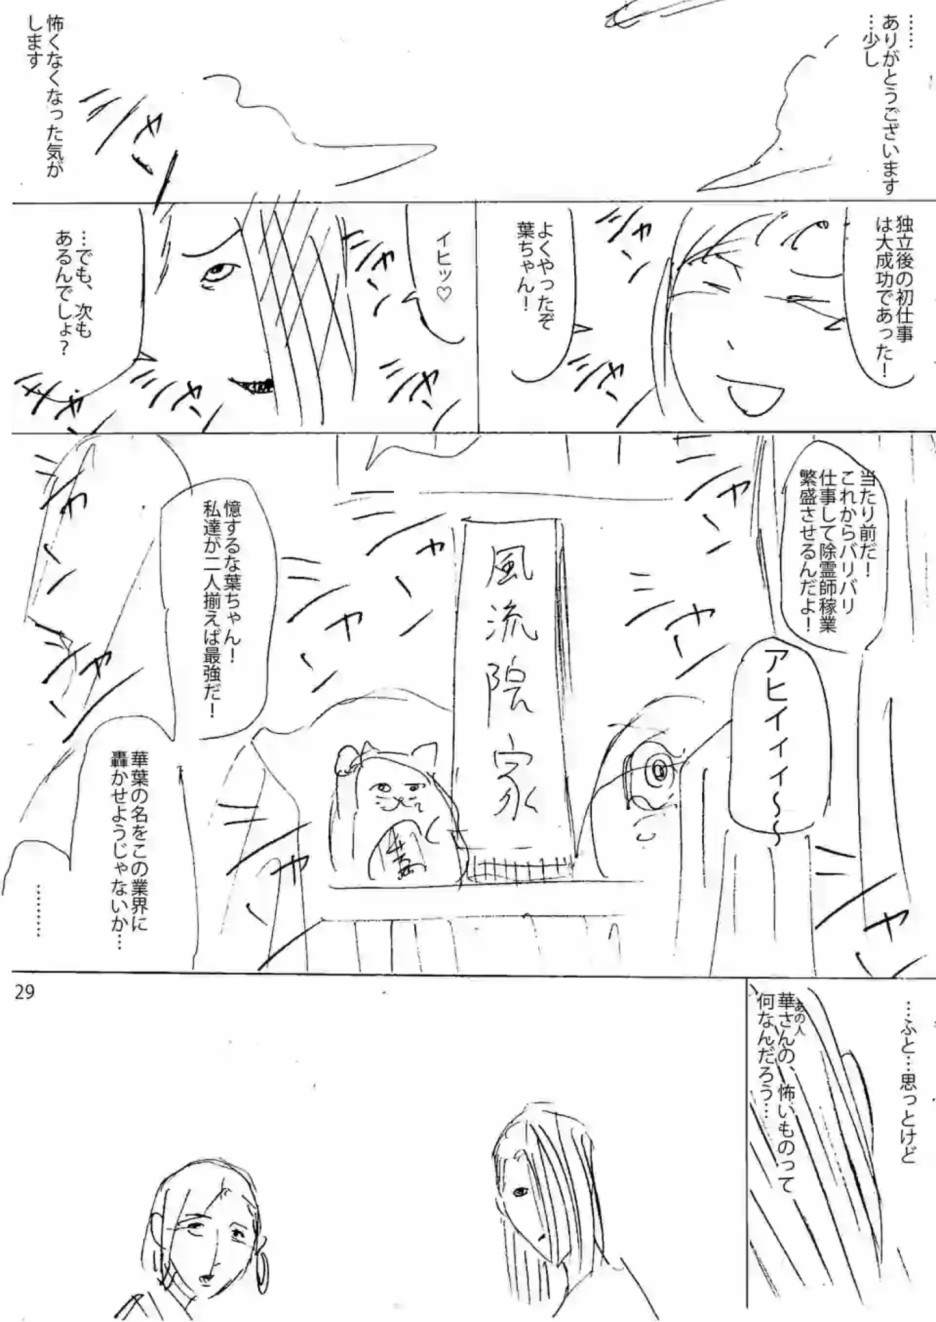 ……
ありがとうございます
…少し
怖くなくなった気が
します
シャ、
独立後の初仕事
は大成功であった！
よくやったぞ
葉ちゃん！
シャ、
シャ、
イヒッ♡
…でも、次も
あるんでしょ？
シャ、
シャ、
シャ、
シャ、
当たり前だ！
これからバリバリ
仕事して除霊師稼業
繁盛させるんだよ！
アヒィィィ〜〜
風流院家
憶するな葉ちゃん！
私達が二人揃えば最強だ！
華葉の名をこの業界に
轟かせようじゃないか…
………
シャ、
シャ、
シャ、
シャ、
シャ、
シャ、
…ふと…思っとけど
あの人
華さんの、怖いものって
何なんだろう…
29